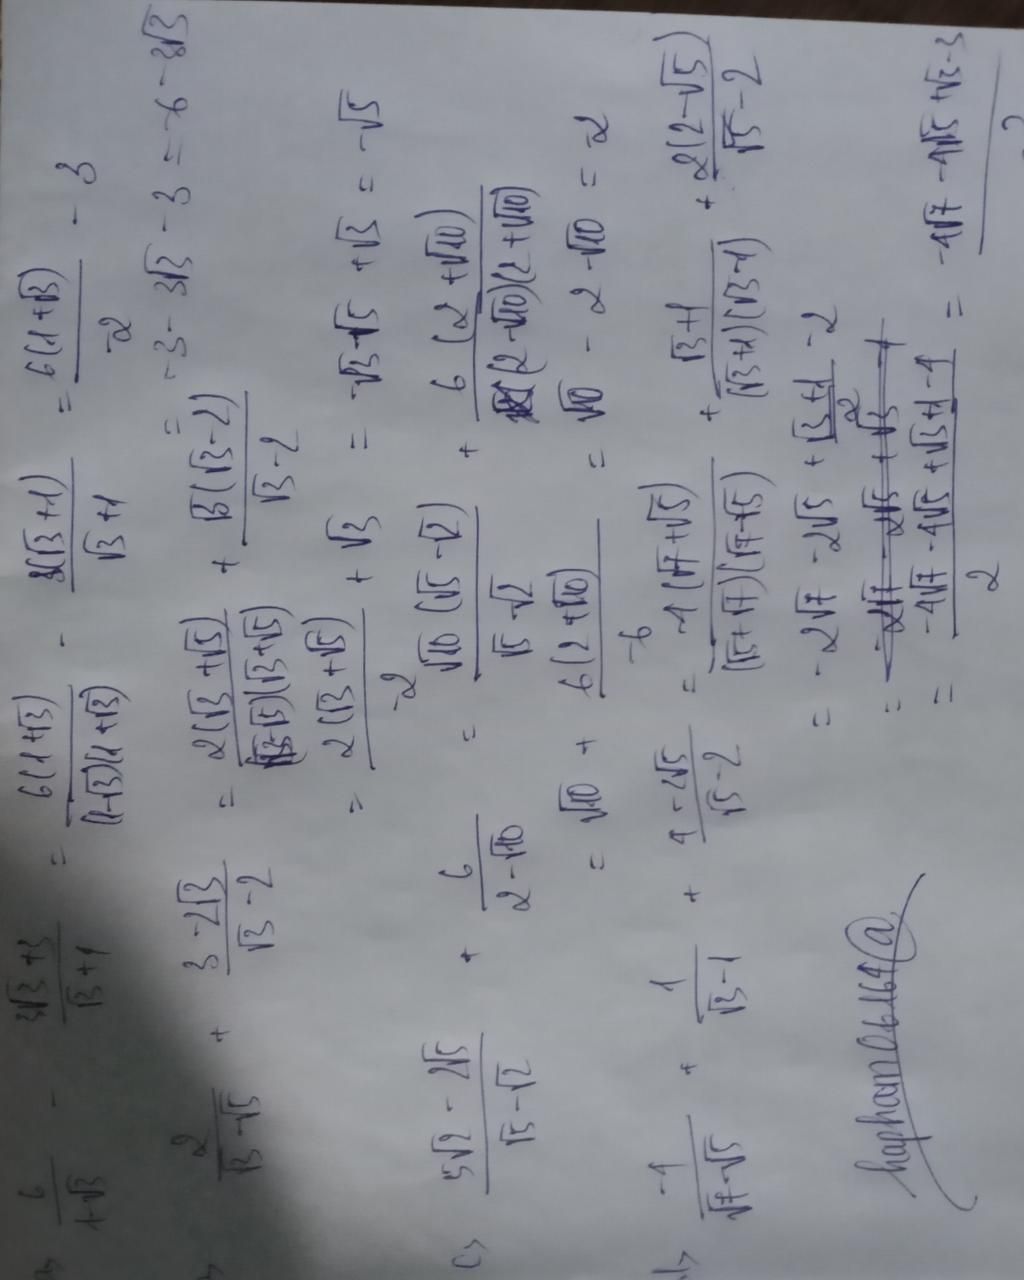 a) 6/(1-√3) - (3√3+3)/(√3+1) = 6(1+√3)/((1-√3)(1+√3)) - 3(√3+1)/(√3+1) = 6(1+√3)/-2 - 3
= -3 - 3√3 - 3 = -6 - 3√3
2/(√3-√5) + (3-2√3)/(√3-2) = 2(√3+√5)/((√3-√5)(√3+√5)) + √3(√3-2)/(√3-2)
= 2(√3+√5)/-2 + √3 = -√3-√5 + √3 = -√5
c) (5√2 - 2√5)/(√5-√2) + 6/(2-√10) = √10(√5-√2)/(√5-√2) + 6(2+√10)/((2-√10)(2+√10))
= √10 + 6(2+√10)/-6 = √10 - 2 - √10 = -2
d) -4/(√7-√5) + 1/(√3-1) + (4-2√5)/(√5-2) = -4(√7+√5)/((√5+√7)(√7-√5)) + (√3+1)/((√3+1)(√3-1)) + 2(2-√5)/(√5-2)
= -2√7 - 2√5 + (√3+1)/2 - 2
= (-4√7 - 4√5 + √3+1-4)/2 = (-4√7 - 4√5 + √3-3)/2
hapham26164@